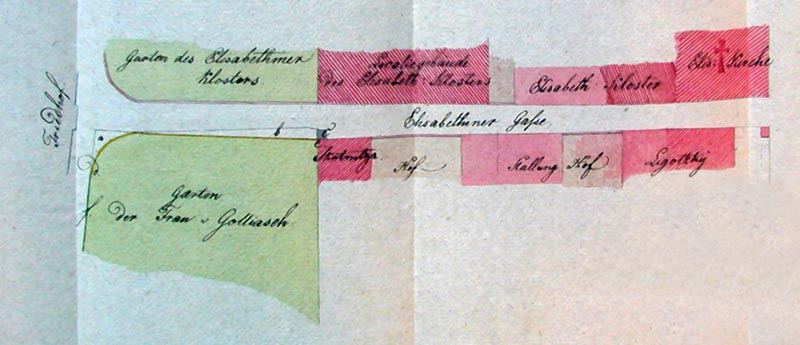 Friedhof
Garten des Elisabethiner
Klosters
des Elisabeth-Klosters
Elisabeth Kloster
Elis: Kirche
Elisabethiner Gaße
Hof
Kallung Hof
Ligotzky
Garten
der Frau v Golliasch